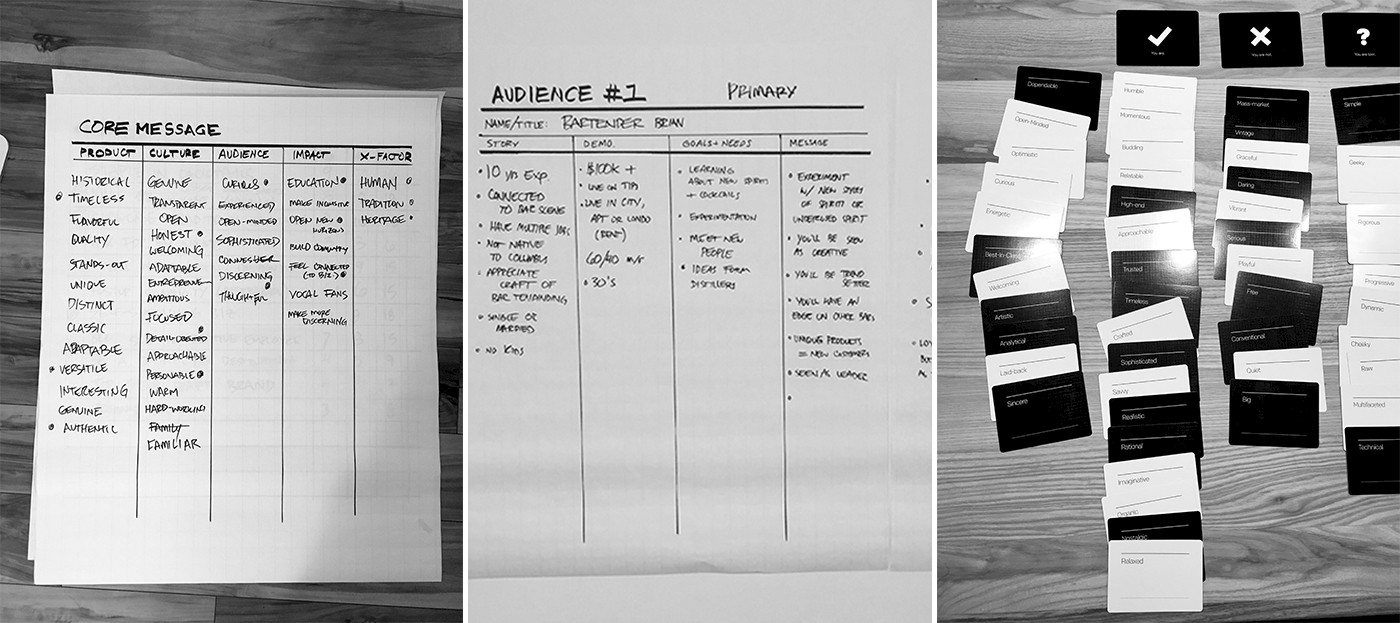 CORE MESSAGE
PRODUCT CULTURE AUDIENCE IMPACT X-FACTOR
HISTORICAL
TIMELESS
FLAVORFUL
QUALITY
STANDS-OUT
UNIQUE
DISTINCT
CLASSIC
ADAPTABLE
VERSATILE
INTERESTING
GENUINE
AUTHENTIC
GENUINE
TRANSPARENT
OPEN
HONEST
WELCOMING
ADAPTABLE
AMBITIOUS
FOCUSED
DETAIL-ORIENTED
APPROACHABLE
PERSONABLE
WARM
HARD-WORKING
FAMILY
FAMILIAR
CURIOUS
EXPERIENCED
OPEN-MINDED
SOPHISTICATED
DISCERNING
THOUGHTFUL
EDUCATION
MAKE INQUISITIVE
OPEN NEW
HORIZONS
BUILD COMMUNITY
FEEL CONNECTED
(TO BIZ.)
VOCAL FANS
MAKE MORE
DISCERNING
HUMAN
TRADITION
HERITAGE
AUDIENCE #1 PRIMARY
NAME/TITLE: BARTENDER BRIAN
STORY DEMO. GOALS+NEEDS MESSAGE
• 10 yr EXP.
• CONNECTED
TO BAR SCENE
• HAVE MULTIPLE JOBS
• NOT NATIVE
TO COLUMBUS
• APPRECIATE
CRAFT OF
BARTENDING
• SINGLE OR
MARRIED
• NO KIDS
• $100K +
• LIVE ON TIPS
• LIVE IN CITY,
APT OR CONDO
(RENT)
60/40 m/f
• 30'S
• LEARNING
ABOUT NEW SPIRITS
+ COCKTAILS
• EXPERIMENTATION
• MEET NEW
PEOPLE
• IDEAS FROM
DISTILLERS
• EXPERIMENT
W/ NEW SPIRITS
OF SPIRIT OR
SPIRIT
• YOU'LL BE SEEN
AS CREATIVE
• YOU'LL BE TREND
SETTER
• YOU'LL HAVE AN
EDGE ON OTHER BARS
• UNIQUE PRODUCTS
= NEW CUSTOMERS
• SEEN AS LEADER
You are.
You are not.
You are torn.
Dependable
Open-Minded
Optimistic
Curious
Energetic
Best-in-Class
Welcoming
Artistic
Analytical
Laid-back
Sincere
Humble
Momentous
Budding
Relatable
High-end
Approachable
Trusted
Timeless
Crafted
Sophisticated
Savvy
Realistic
Rational
Imaginative
Organic
Nostalgic
Relaxed
Mass-market
Vintage
Graceful
Daring
Vibrant
Serious
Playful
Free
Conventional
Quiet
Big
?
Simple
Geeky
Rigorous
Progressive
Dynamic
Cheeky
Rare
Multifaceted
Technical